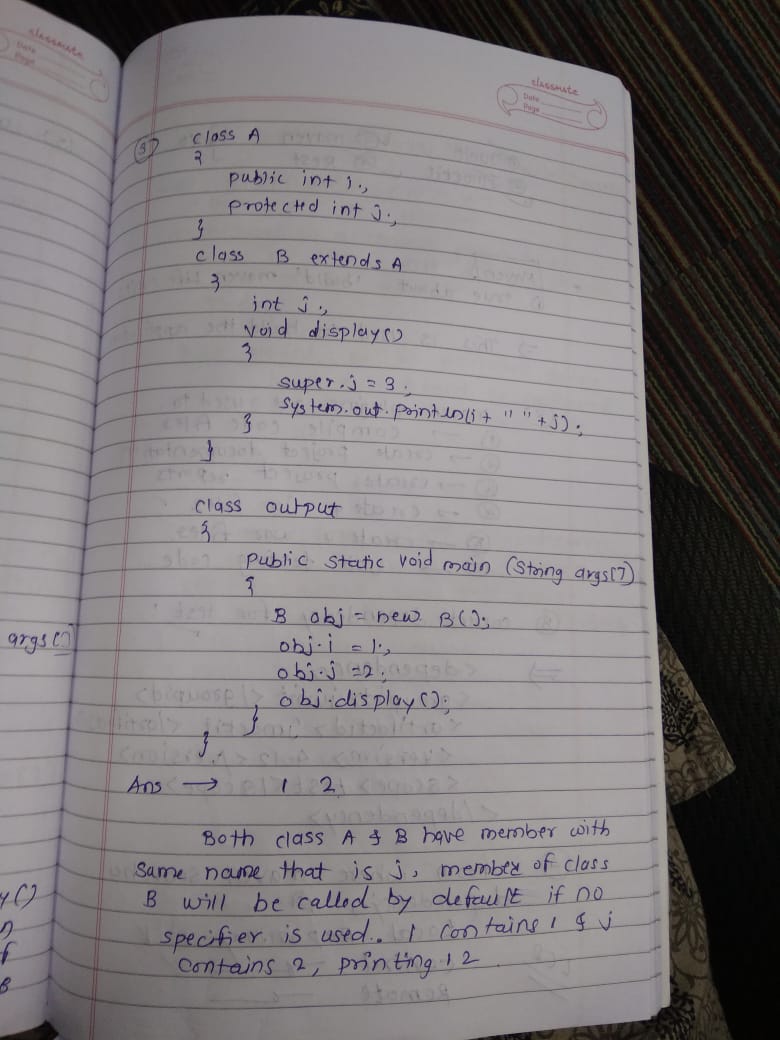 classmate
Date
Page
classmate
Date
Page
(3) class A
{
public int i;
protected int j;
}
class B extends A
{
int j;
void display()
{
super.j = 3;
System.out.println(i+ " " +j);
}
}
class output
{
public static void main (String args[])
{
B obj = new B();
obj.i = 1;
obj.j = 2;
obj.display();
}
}
args []
Ans → 1 2
Both class A & B have member with
same name that is j, member of class
B will be called by default if no
specifier is used. I contains 1 & j
contains 2, printing 1 2